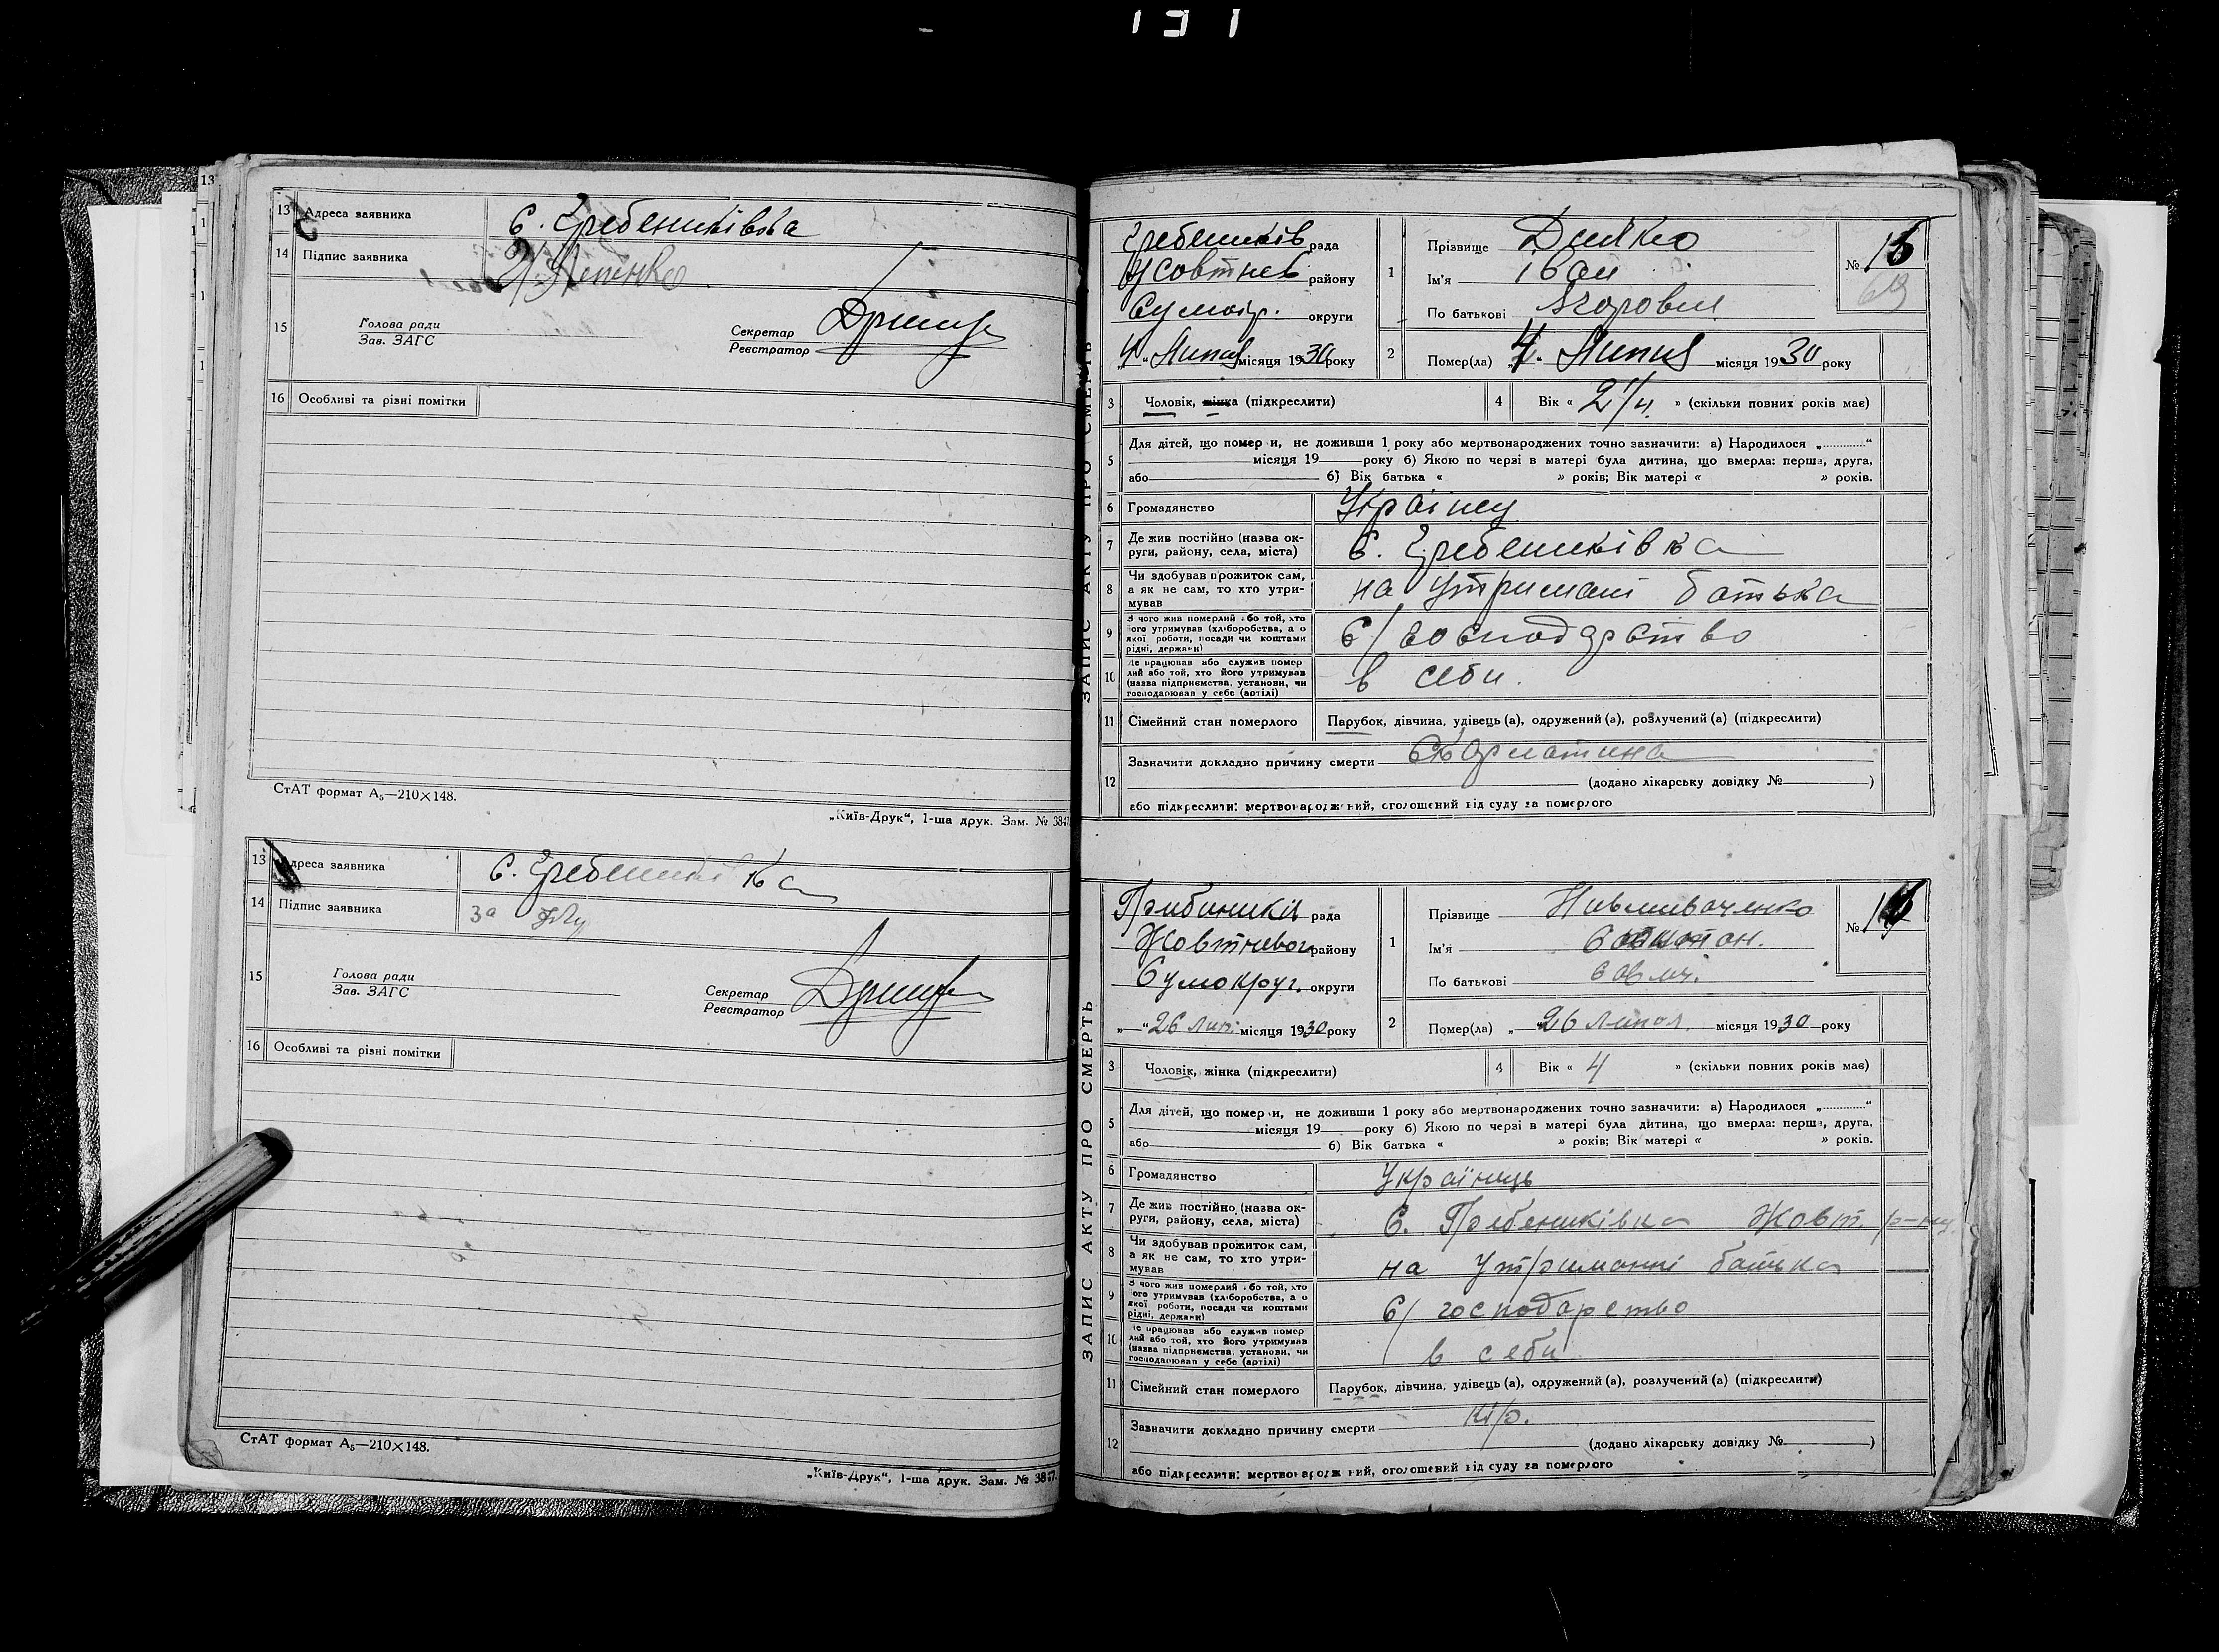 13 Адреса заявника С. Гребениківка
14 Підпис заявника
15 Голова ради
Зав. ЗАГС
Секретар
Реєстратор
16 Особливі та різні помітки
СтАТ формат А5—210×148.
„Київ-Друк“, 1-ша друк. Зам. № 3847.
13 Адреса заявника С. Гребениківка
14 Підпис заявника за
15 Голова ради
Зав. ЗАГС
Секретар
Реєстратор
16 Особливі та різні помітки
СтАТ формат А5—210×148.
„Київ-Друк“, 1-ша друк. Зам. № 3847.
ЗАПИС АКТУ ПРО СМЕРТЬ
Гребеників рада
Жовтнев району
Сумокр. округи
„4“ Липня місяця 1930 року
1 Прізвище
Ім'я Іван
По батькові Ягорович
№ 69
2 Помер(ла) „4“ Липня місяця 1930 року
3 Чоловік, жінка (підкреслити)
4 Вік « 2 1/4 » (скільки повних років має)
5 Для дітей, що померли, не доживши 1 року або мертвонароджених точно зазначити: а) Народилося „ “
місяця 19 року б) Якою по черзі в матері була дитина, що вмерла: перша, друга,
або б) Вік батька « » років; Вік матері « » років.
6 Громадянство Українец
7 Де жив постійно (назва ок-
руги, району, села, міста) С. Гребениківка
8 Чи здобував прожиток сам,
а як не сам, то хто утри-
мував на утримані батька
9 З чого жив померлий або той, хто
його утримував (хліборобства, а о
якої роботи, посади чи коштами
рідні, держави) С/господарство
10 Де працював або служив помер
лий або той, хто його утримував
(назва підприємства, установи, чи
господарював у себе (артілі) в себи.
11 Сімейний стан померлого Парубок, дівчина, удівець (а), одружений (а), розлучений (а) (підкреслити)
12 Зазначити докладно причину смерти Скарлатина
(додано лікарську довідку № )
або підкреслити: мертвонароджений, оголошений від суду за померлого
ЗАПИС АКТУ ПРО СМЕРТЬ
рада
Жовтневого району
Сумокруг. округи
„ “ 26 Лип. місяця 1930 року
1 Прізвище
Ім'я
По батькові
№
2 Помер(ла) „ 26 Липня місяця 1930 року
3 Чоловік, жінка (підкреслити)
4 Вік « 4 » (скільки повних років має)
5 Для дітей, що померли, не доживши 1 року або мертвонароджених точно зазначити: а) Народилося „ “
місяця 19 року б) Якою по черзі в матері була дитина, що вмерла: перша, друга,
або б) Вік батька « » років; Вік матері « » років.
6 Громадянство Українець
7 Де жив постійно (назва ок-
руги, району, села, міста) С. Гребениківка Жовт. р-ну.
8 Чи здобував прожиток сам,
а як не сам, то хто утри-
мував на утриманні батька
9 З чого жив померлий або той, хто
його утримував (хліборобства, а о
якої роботи, посади чи коштами
рідні, держави) С/господарство
10 Де працював або служив помер
лий або той, хто його утримував
(назва підприємства, установи, чи
господарював у себе (артілі) в себи
11 Сімейний стан померлого Парубок, дівчина, удівець (а), одружений (а), розлучений (а) (підкреслити)
12 Зазначити докладно причину смерти кір.
(додано лікарську довідку № )
або підкреслити: мертвонароджений, оголошений від суду за померлого